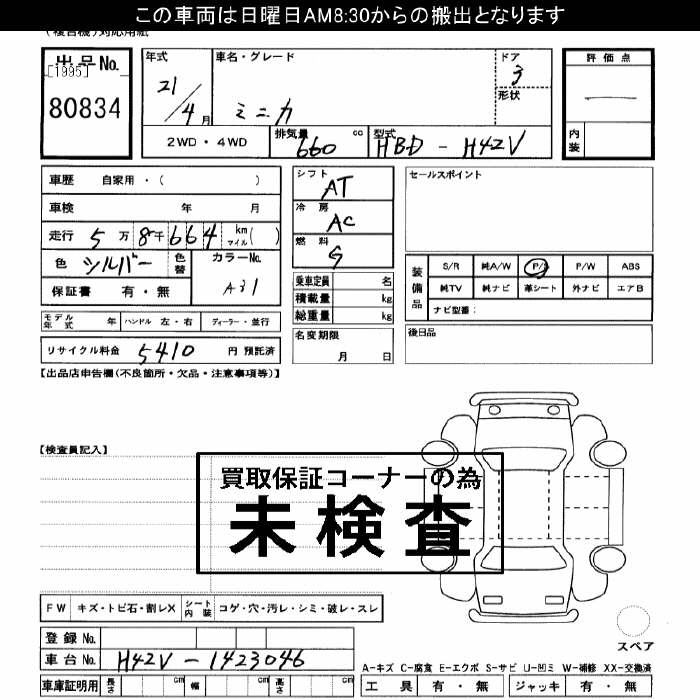 この車両は日曜日AM8:30からの搬出となります
(複合機)対応用紙
出品No.
[1995]
80834
年式
21/4月
車名・グレード
ミニカ
ドア
3
形状
評価点
内装
2WD・4WD
排気量
660
cc
型式
HBD - H42V
車歴 自家用・( )
車検 年 月
走行 5万8千664 km マイル( )
色 シルバー 色替
カラーNo.
A31
保証書 有・無
シフト
AT
冷房
AC
燃料
G
乗車定員 名
積載量 kg
総重量 kg
セールスポイント
装備品
S/R 純A/W P/S P/W ABS
純TV 純ナビ 革シート 外ナビ エアB
ナビ型番:
モデル年式 年 ハンドル 左・右 ディーラー・並行
名変期限
月 日
後日品
リサイクル料金 5410 円 預託済
【出品店申告欄(不良箇所・欠品・注意事項等)】
【検査員記入】
買取保証コーナーの為
未検査
FW キズ・トビ石・割レX シート内装 コゲ・穴・汚レ・シミ・破レ・スレ
登録No.
車台No. H42V - 1423046
車庫証明用 長さ cm 幅 cm 高さ cm
スペア
A-キズ C-腐食 E-エクボ S-サビ U-凹ミ W-補修 XX-交換済
工具 有・無 ジャッキ 有・無